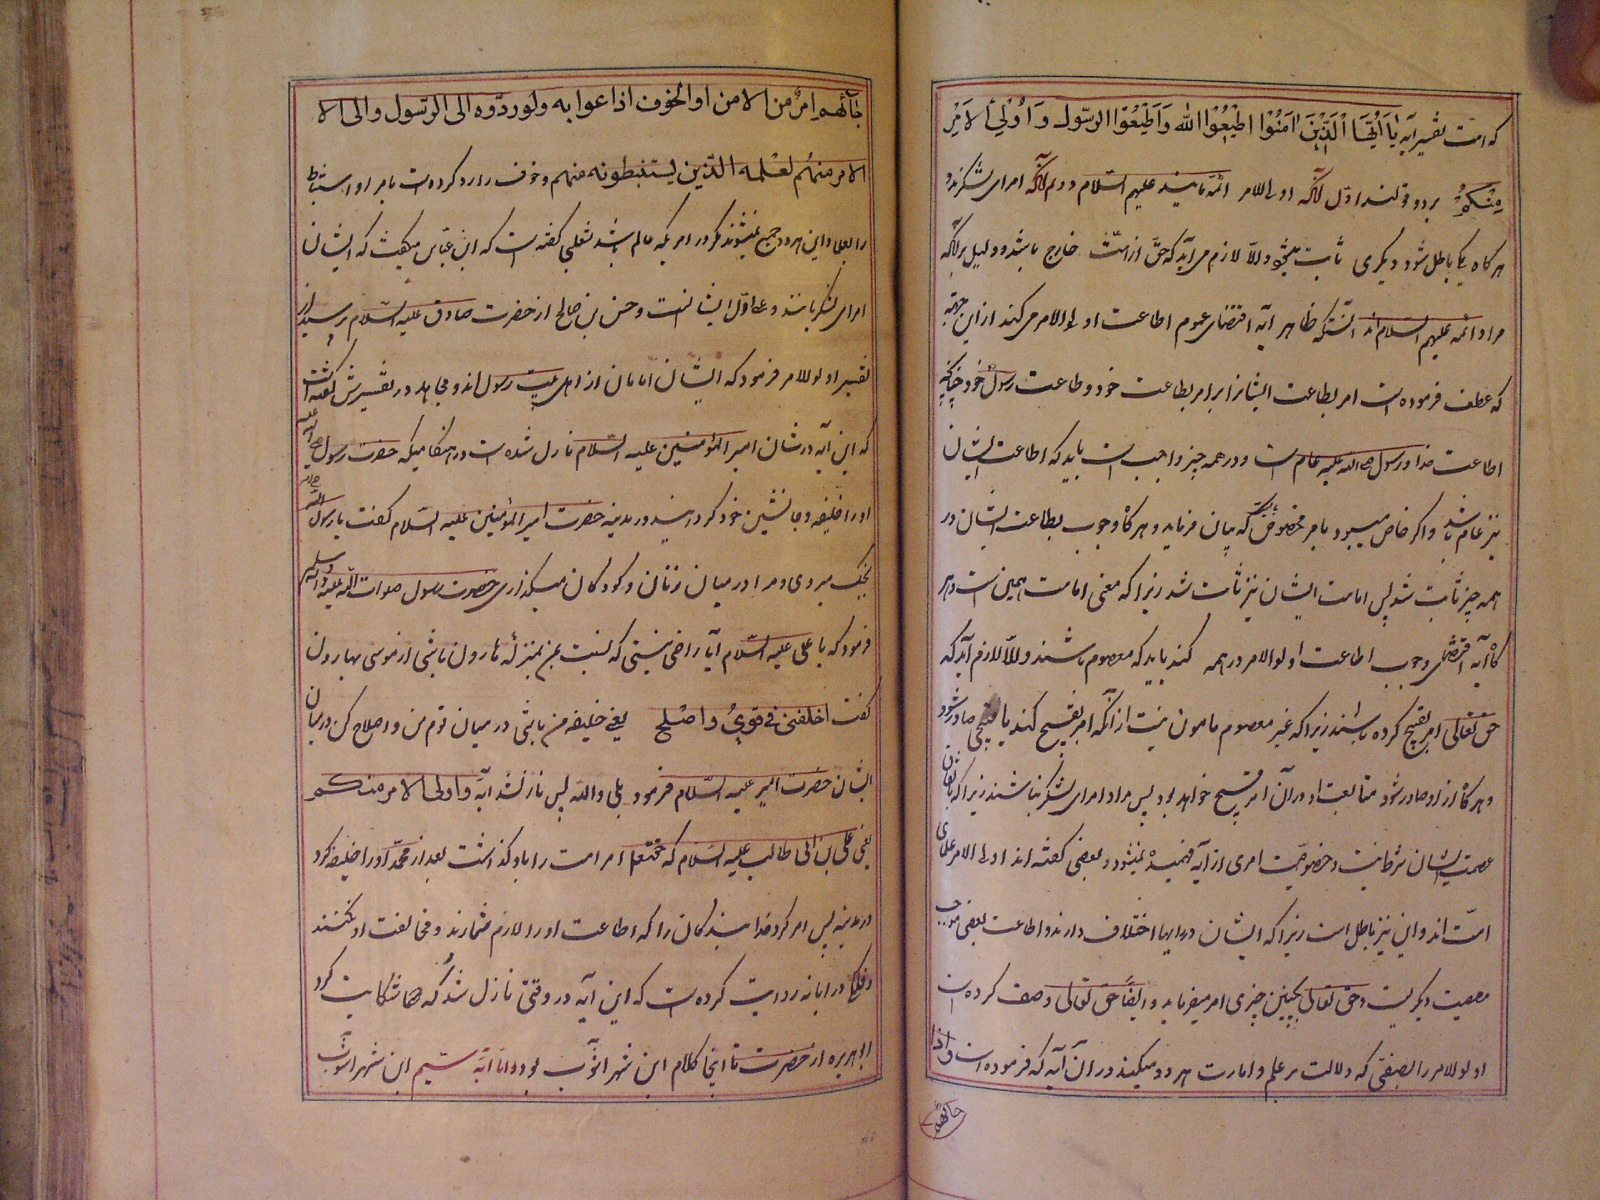 که امت تفسیر آیه یٰا اَیُّهَا الَّذِیْنَ اٰمَنُوْا اطِیْعُوْا اللّٰه وَ اَطِیْعُوْا الرّسُولَ وَ اُولِی الْاَمْرِ
مِنْکُمْ بر دو قولند اول آنکه اولی الامر ائمه مایند علیهم السّلام دوم آنکه امرای لشکرند و
هر کاه یکی باطل شود دیکری ثابت میشود والّا لازم می آید که حقّ از امّت خارج باشد و دلیل بر آنکه
مراد ائمه علیهم السّلام اند آنست که ظاهر آیه اقتضای عموم اطاعت اولوالامر می کند از این جهة
که عطف فرموده است امر بطاعت ایشانرا بر امر بطاعت خود و طاعت رسول خود چنانچه
اطاعت خدا و رسول صلی الله علیه عام است و در همه چیز واجب است باید که اطاعت ایشان
نیز عام باشد و اکر خاص میبود بامر مخصوص که بیان فرماید و هر کاه وجوب بطاعت ایشان در
همه چیز ثابت شد پس امامت ایشان نیز ثابت شد زیرا که معنی امامت همین است و هر
کاه آیه اقتضای وجوب اطاعت اولوالامر در همه کند باید که معصوم باشند والّا لازم آید که
حق تعالی امر بقبیح کرده باشند زیرا که غیر معصوم مامون نیست از آنکه امر بقبیح کند یا قبیحی صادر شود
و هر کاه از او صادر شود متابعت او در آن امر قبیح خواهد بود پس مراد امرای لشکر نباشند زیرا که باتفاق
عصمت ایشان شرط نیست و خصوصیّت امری از آیه فهمیده نمیشود و بعضی کفته اند اولی الامر علمای
امّت اند و این نیز باطل است زیرا که ایشان در رایها اختلاف دارند و اطاعت بعضی موجب
معصیت دیکریست و حق تعالی بچنین چیزی امر میفرماید و ایضًا حق تعالی وصف کرده است
اولوالامر را بصفتی که دلالت بر علم و امارت هر دو میکند در آن آیه که فرموده است و اذا
جائهم
جآئهم امرٌ من الامن او الخوف اذاعوا به ولو ردّوه الی الرّسول والی الا
الامر منهُم لعَلمه الّذین یستنبطونه منهم و خوف را رد کرده است بامرا و استنباط
را بعلما و این هر دو جمع نمیشوند مکر در امیریکه عالم باشد شعبی کفته است که ابن عبّاس میکفت که ایشان
امرای لشکر باشند و علی اوّل ایشانست و حسن بن صالح از حضرت صادق علیه السّلام پرسید از
تفسیر اولوالامر فرمود که ایشان امامان از اهل بیت رسول اند و مجاهد در تفسیرش کفته است
که این آیه در شان امیر المؤمنین علیه السّلام نازل شده است در هنکامیکه حضرت رسول صلی الله علیه
او را خلیفه و جانشین خود کردانید در مدینه حضرت امیر المؤمنین علیه السّلام کفت یا رسول الله
بجنک میروی و مرا در میان زنان و کودکان میکذاری حضرت رسول صلوات الله علیه و آله وسلم
فرمود که یا علی علیه السّلام آیا راضی نیستی که نسبت بمن بمنزلهٔ هارون باشی از موسی بهارون
کفت اخلفنی فی قومی و اصلح یعنی خلیفه من باش در میان قوم من و اصلاح کن در میان
ایشان حضرت امیر علیه السّلام فرمود بلی والله پس نازل شد آیه و اولی الامر منکم
یعنی علی بن ابی طالب علیه السّلام که حقتعالی امر امت را باو کذاشت بعد از محمّد و او را خلیفه کرد
در مدینه پس امر کرد خدا بندکان را که اطاعت او را لازم شمارند و مخالفت او نکنند
و فلکی در ابانه روایت کرده است که این آیه در وقتی نازل شد که شکایت کرد
ابو بریره از حضرت تا اینجا کلام ابن شهر اشوب بود و اما آیه ششم ابن شهر اشوب